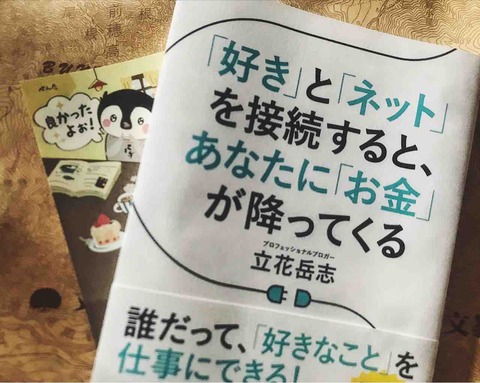 「好き」と「ネット」
を接続すると、
あなたに「お金」
が降ってくる
プロフェッショナルブロガー
立花岳志
誰だって、「好きなこと」を
仕事にできる!
ぺんた
良かった
よぉ!